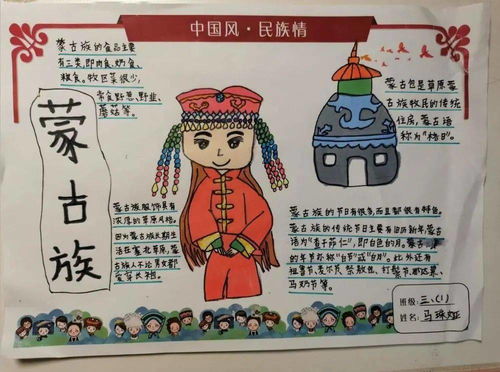 中国风·民族情
蒙古族的食品主要
有三类,即肉食、奶食、
粮食。牧区菜很少,
常食野葱、野韭、
蘑菇等。
蒙古族
蒙古包是草原蒙
古族牧民的传统
住房,蒙古语
称为"格日"。
蒙古族服饰具有
浓厚的草原风格。
因为蒙古族长期生
活在塞北草原,蒙
古族人不论男女都
爱穿长袍
蒙古族的节日有很多,而且都很有特色。
蒙古族的传统节日主要有旧历新年,蒙古
语为"查干萨仁",即白色的月。蒙古
的年节亦称"白节"或"白月"。此外还有
祖鲁节、麦尔节、祭敖包、打鬃节、那达慕、
马奶节等。
班级:三、(1)
姓名:马